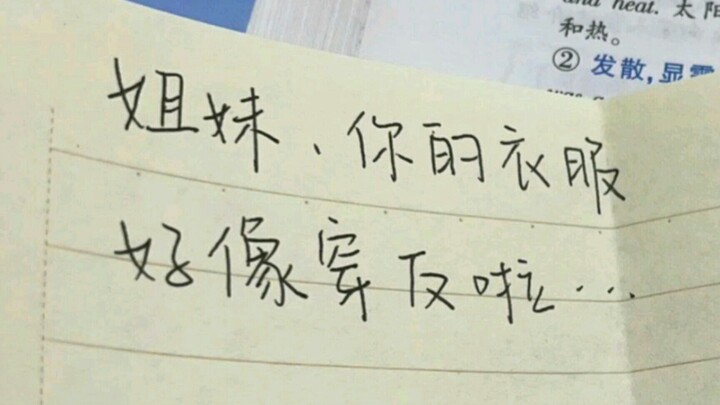 and heat. 太阳
和热。
② 发散,显露
姐妹、你的衣服
好像穿反啦…